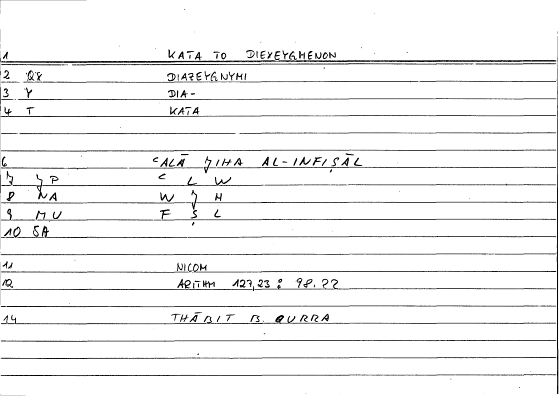 1 KATA TO DIEXEYGMENON
2 Q8 DIAZEYGNYMI
3 Y DIA-
4 T KATA
6 ʿALĀ ǦIHA AL-INFIṢĀL
7 ǦP ʿ L W
8 NA W Ǧ H
9 MU F Ṣ L
10 SA
11 NICOM
12 ARITHM 127,23 : 98.22
14 THĀBIT B. QURRA